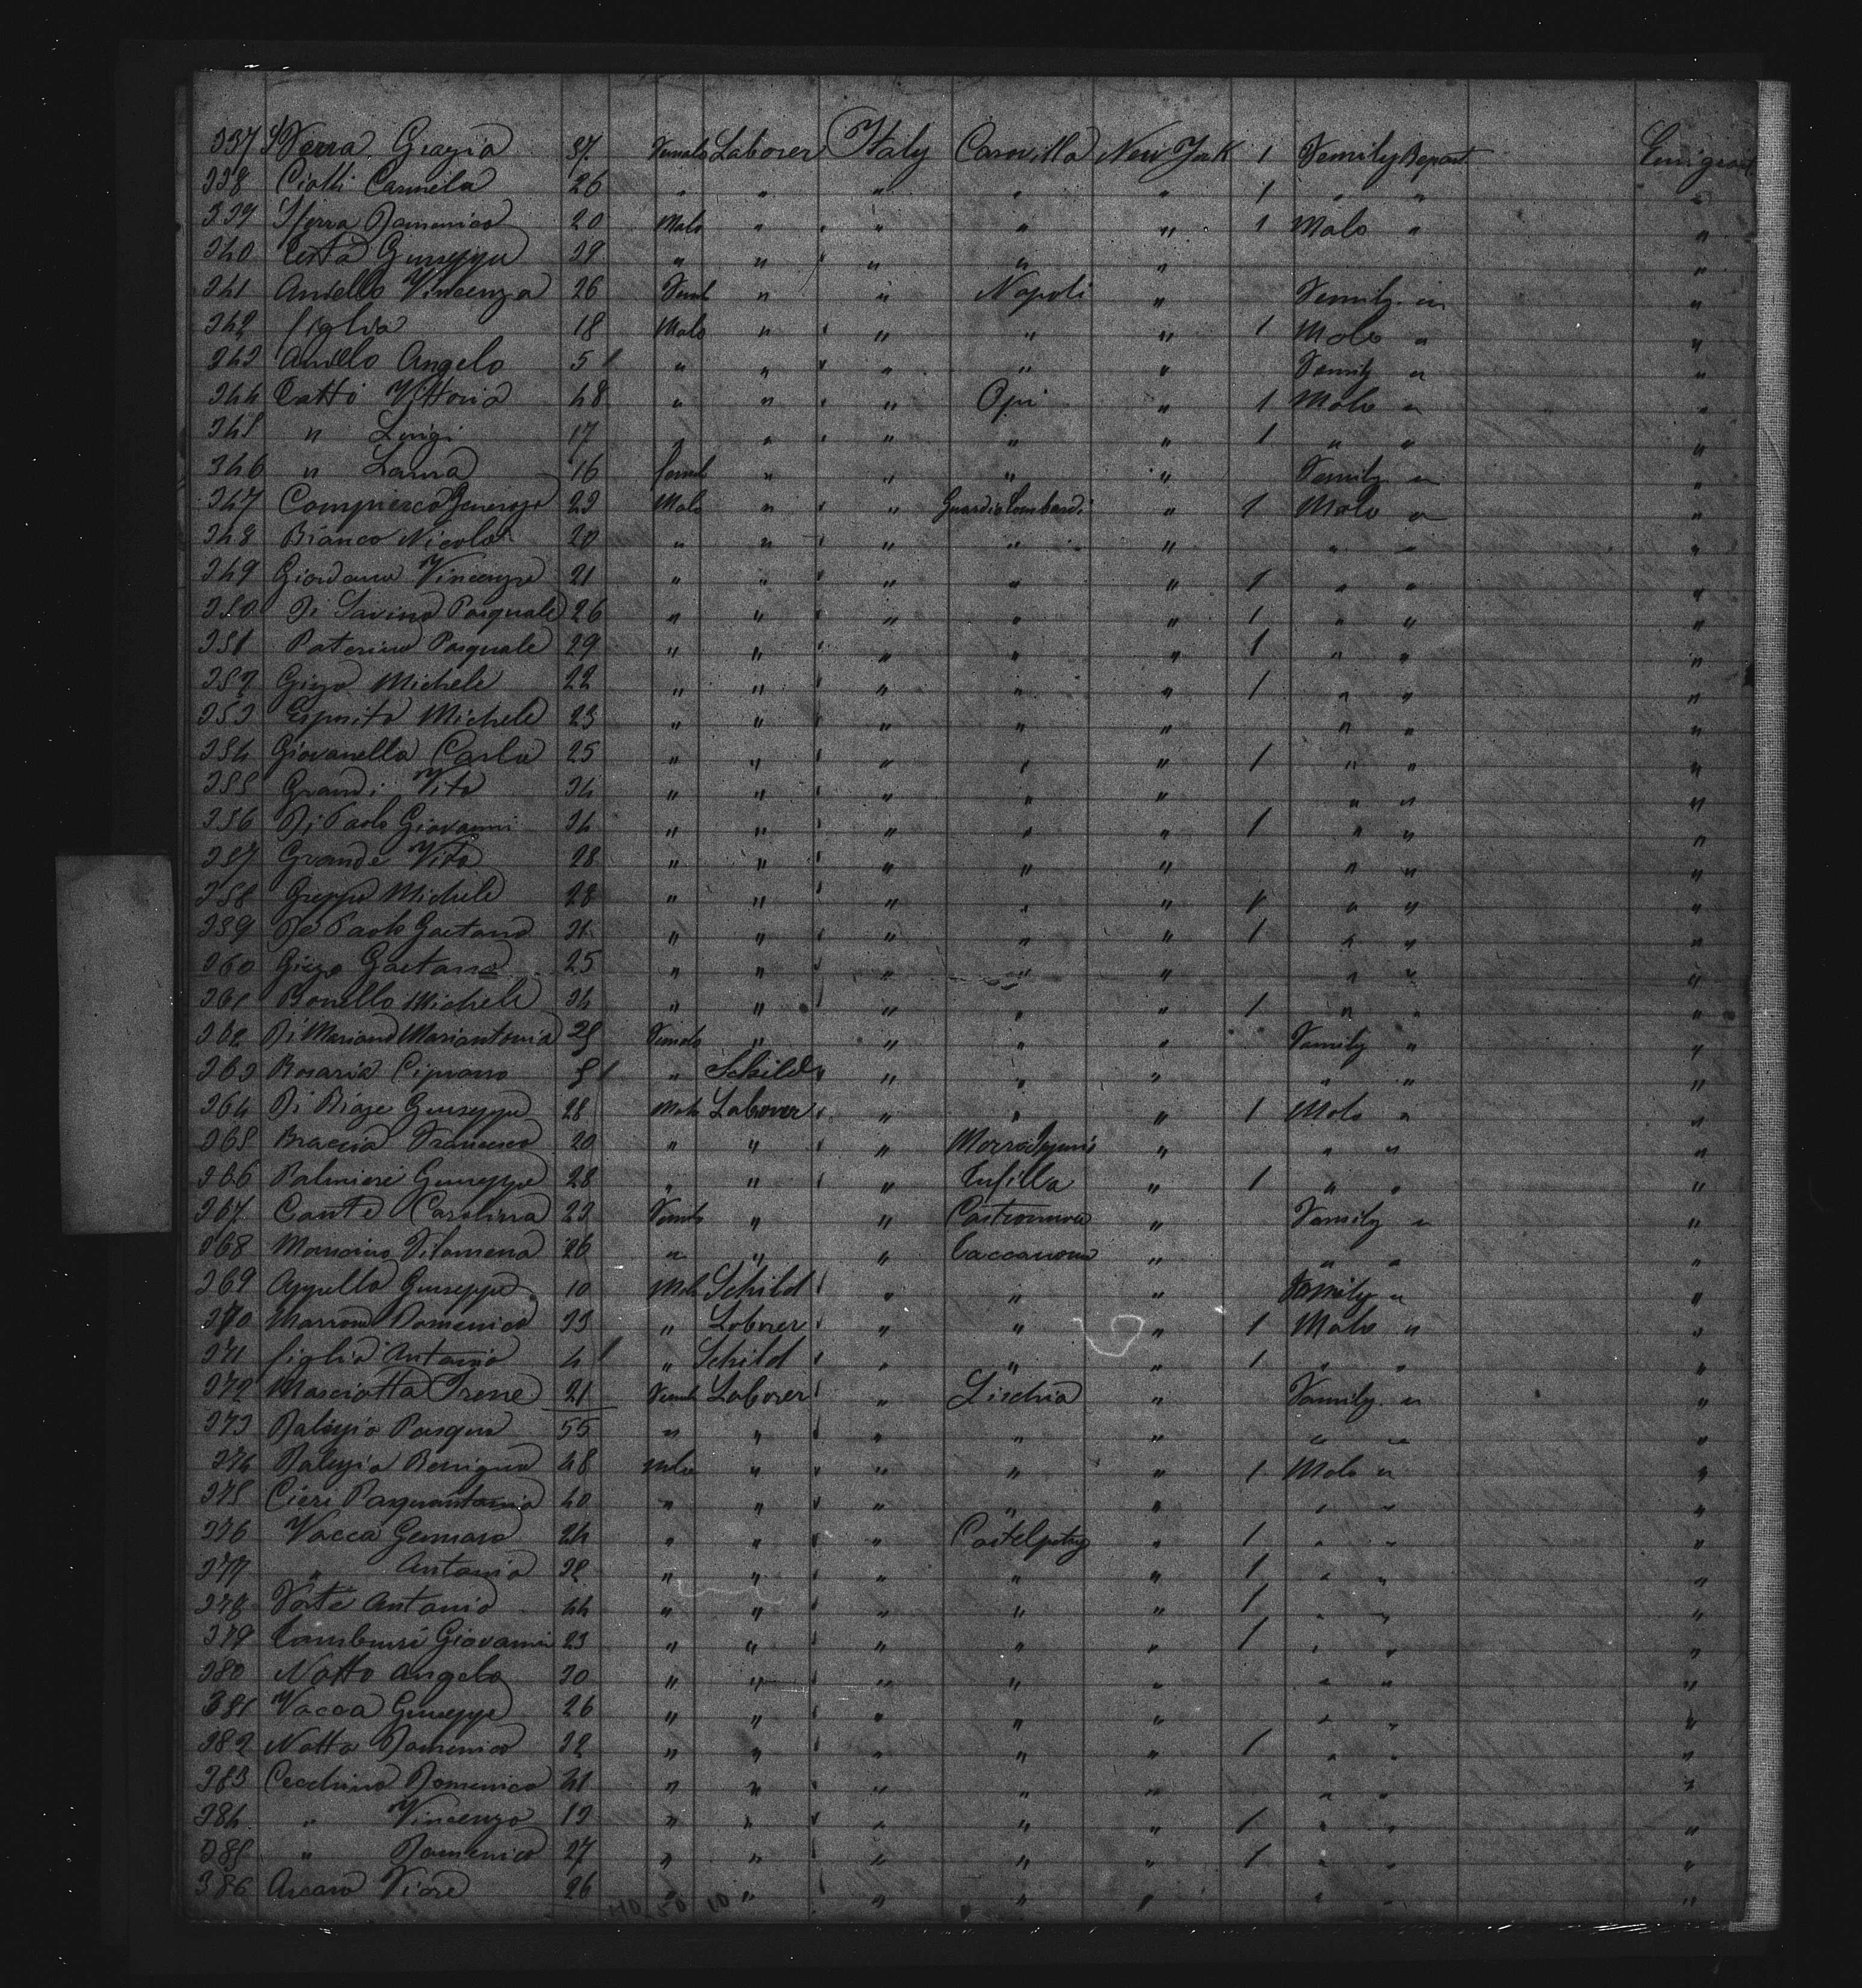 337 Sferra Grazia 37 Female Laborer Italy Carovilla New York 1 Family Depart Emigrant
338 Ciotti Carmela 26 " " " " " 1 " " "
339 Sferra Domenico 20 Male " " " " 1 Male " "
340 Testa Giuseppe 39 " " " " " "
341 Aniello Vincenza 26 Feml " " Napoli " Femily " "
342 figlio 18 Male " " " " 1 Male " "
343 Aniello Angelo 5 " " " " " Femily " "
344 Tatti Vittorio 48 " " " Opi " 1 Male " "
345 " Luigi 17 " " " " " 1 " " "
346 " Laura 16 feml " " " " Femily " "
347 Generoso 23 Male " " Guardia Lombardi " 1 Male " "
348 Bianco Nicola 20 " " " " " " " "
349 Giordano Vincenzo 21 " " " " " 1 " " "
350 Di Savino Pasquale 26 " " " " " 1 " " "
351 Paterino Pasquale 29 " " " " " 1 " " "
352 Gizo Michele 22 " " " " " 1 " " "
353 Esposito Michele 23 " " " " " " " "
354 Giovanella Carlo 25 " " " " " 1 " " "
355 Grandi Vito 34 " " " " " " " "
356 Di Paolo Giovanni 34 " " " " " 1 " " "
357 Grande Vito 28 " " " " " " " "
358 Greppo Michele 28 " " " " " 1 " " "
359 De Paolo Gaetano " " " " " 1 " " "
360 Gizzo Gaetano 25 " " " " " " " "
361 Bonello Michele 34 " " " " " 1 " " "
362 Di Mariano Mariantonia 25 Female " " " " Family " "
363 Rosaria Cipriano 5 " Schild " " " " " "
364 Di Biaze Giuseppe 28 Male Laborer " " " 1 Male " "
365 Braccia Francesco 20 " " " " " " "
366 Palmieri Giuseppe 28 " " " Tufilla " 1 " " "
367 Conte Carolina 23 Female " " Castronuova " Family " "
368 Filomena 26 " " " " " " "
369 Appello Giuseppe 10 Male Schild " " " Family " "
370 Marrone Domenico 33 " Laborer " " " 1 Male " "
371 figlio Antonio 4 " Schild " " " 1 " " "
372 Masciotta Irene 21 Female Laborer " Lischia " Family " "
373 Balugio Pasqua 55 " " " " " " " "
374 Balugio Benigno 48 Male " " " " 1 Male " "
375 Cieri Pasquantonio 40 " " " " " " " "
376 Vacca Gennaro 24 " " " Castelpoty " 1 " " "
377 " Antonio 32 " " " " " 1 " " "
378 Forte Antonio 44 " " " " " 1 " " "
379 Tamburi Giovanni 23 " " " " " 1 " " "
380 Notto Angelo 30 " " " " " " " "
381 Vacca Giuseppe 26 " " " " " " " "
382 Notto Domenico 32 " " " " " 1 " " "
383 Cecchino Domenico 41 " " " " " " " "
384 " Vincenzo 13 " " " " " 1 " " "
385 " Domenico 27 " " " " " 1 " " "
386 26 " " " " " " " "